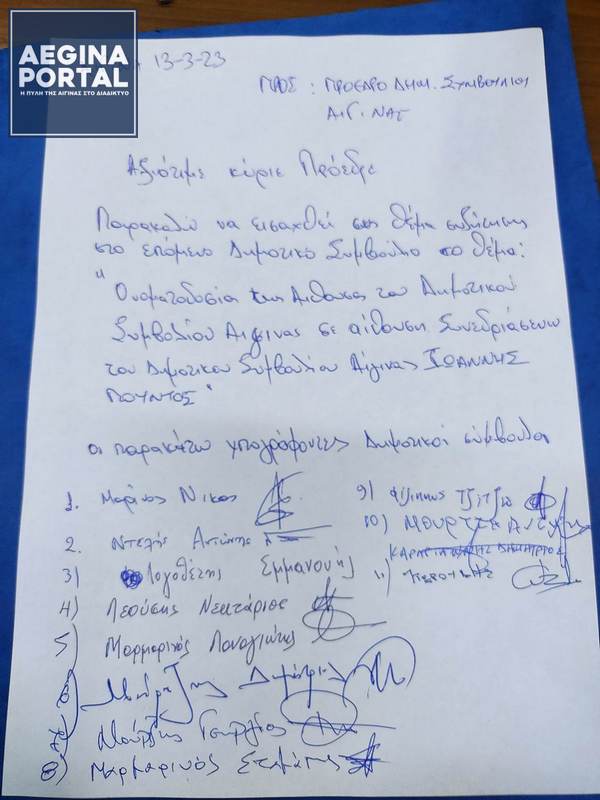 AEGINA
PORTAL
Η ΠΥΛΗ ΤΗΣ ΑΙΓΙΝΑΣ ΣΤΟ ΔΙΑΔΙΚΤΥΟ
13-3-23
ΠΡΟΣ: ΠΡΟΕΔΡΟ ΔΗΜ. ΣΥΜΒΟΥΛΙΟΥ
Αξιότιμε κύριε Πρόεδρε
Παρακαλώ να εισαχθεί ως θέμα συζήτησης
στο επόμενο Δημοτικό Συμβούλιο το θέμα:
"Ονοματοδοσία της Αίθουσας του Δημοτικού
Συμβολίου Αίγινας σε αίθουση Συνεδριάσεων
του Δημοτικού Συμβουλίου Αίγινας ΙΩΑΝΝΗΣ
ΠΟΥΝΤΟΣ"
οι παρακάτω υπογράφοντες Δημοτικοί σύμβουλοι
1. Μαρίνος Νικος
2. Ντελής Αντώνης
3) Λογοθέτης Εμμανουήλ
4) Λεούσης Νεκτάριος
5) Μαρμαρινός Παναγιώτης
Μούρτζης Γεώργιος
8) Μαρμαρινός
9) Φίλιππος Τζίτζης
10)
11)